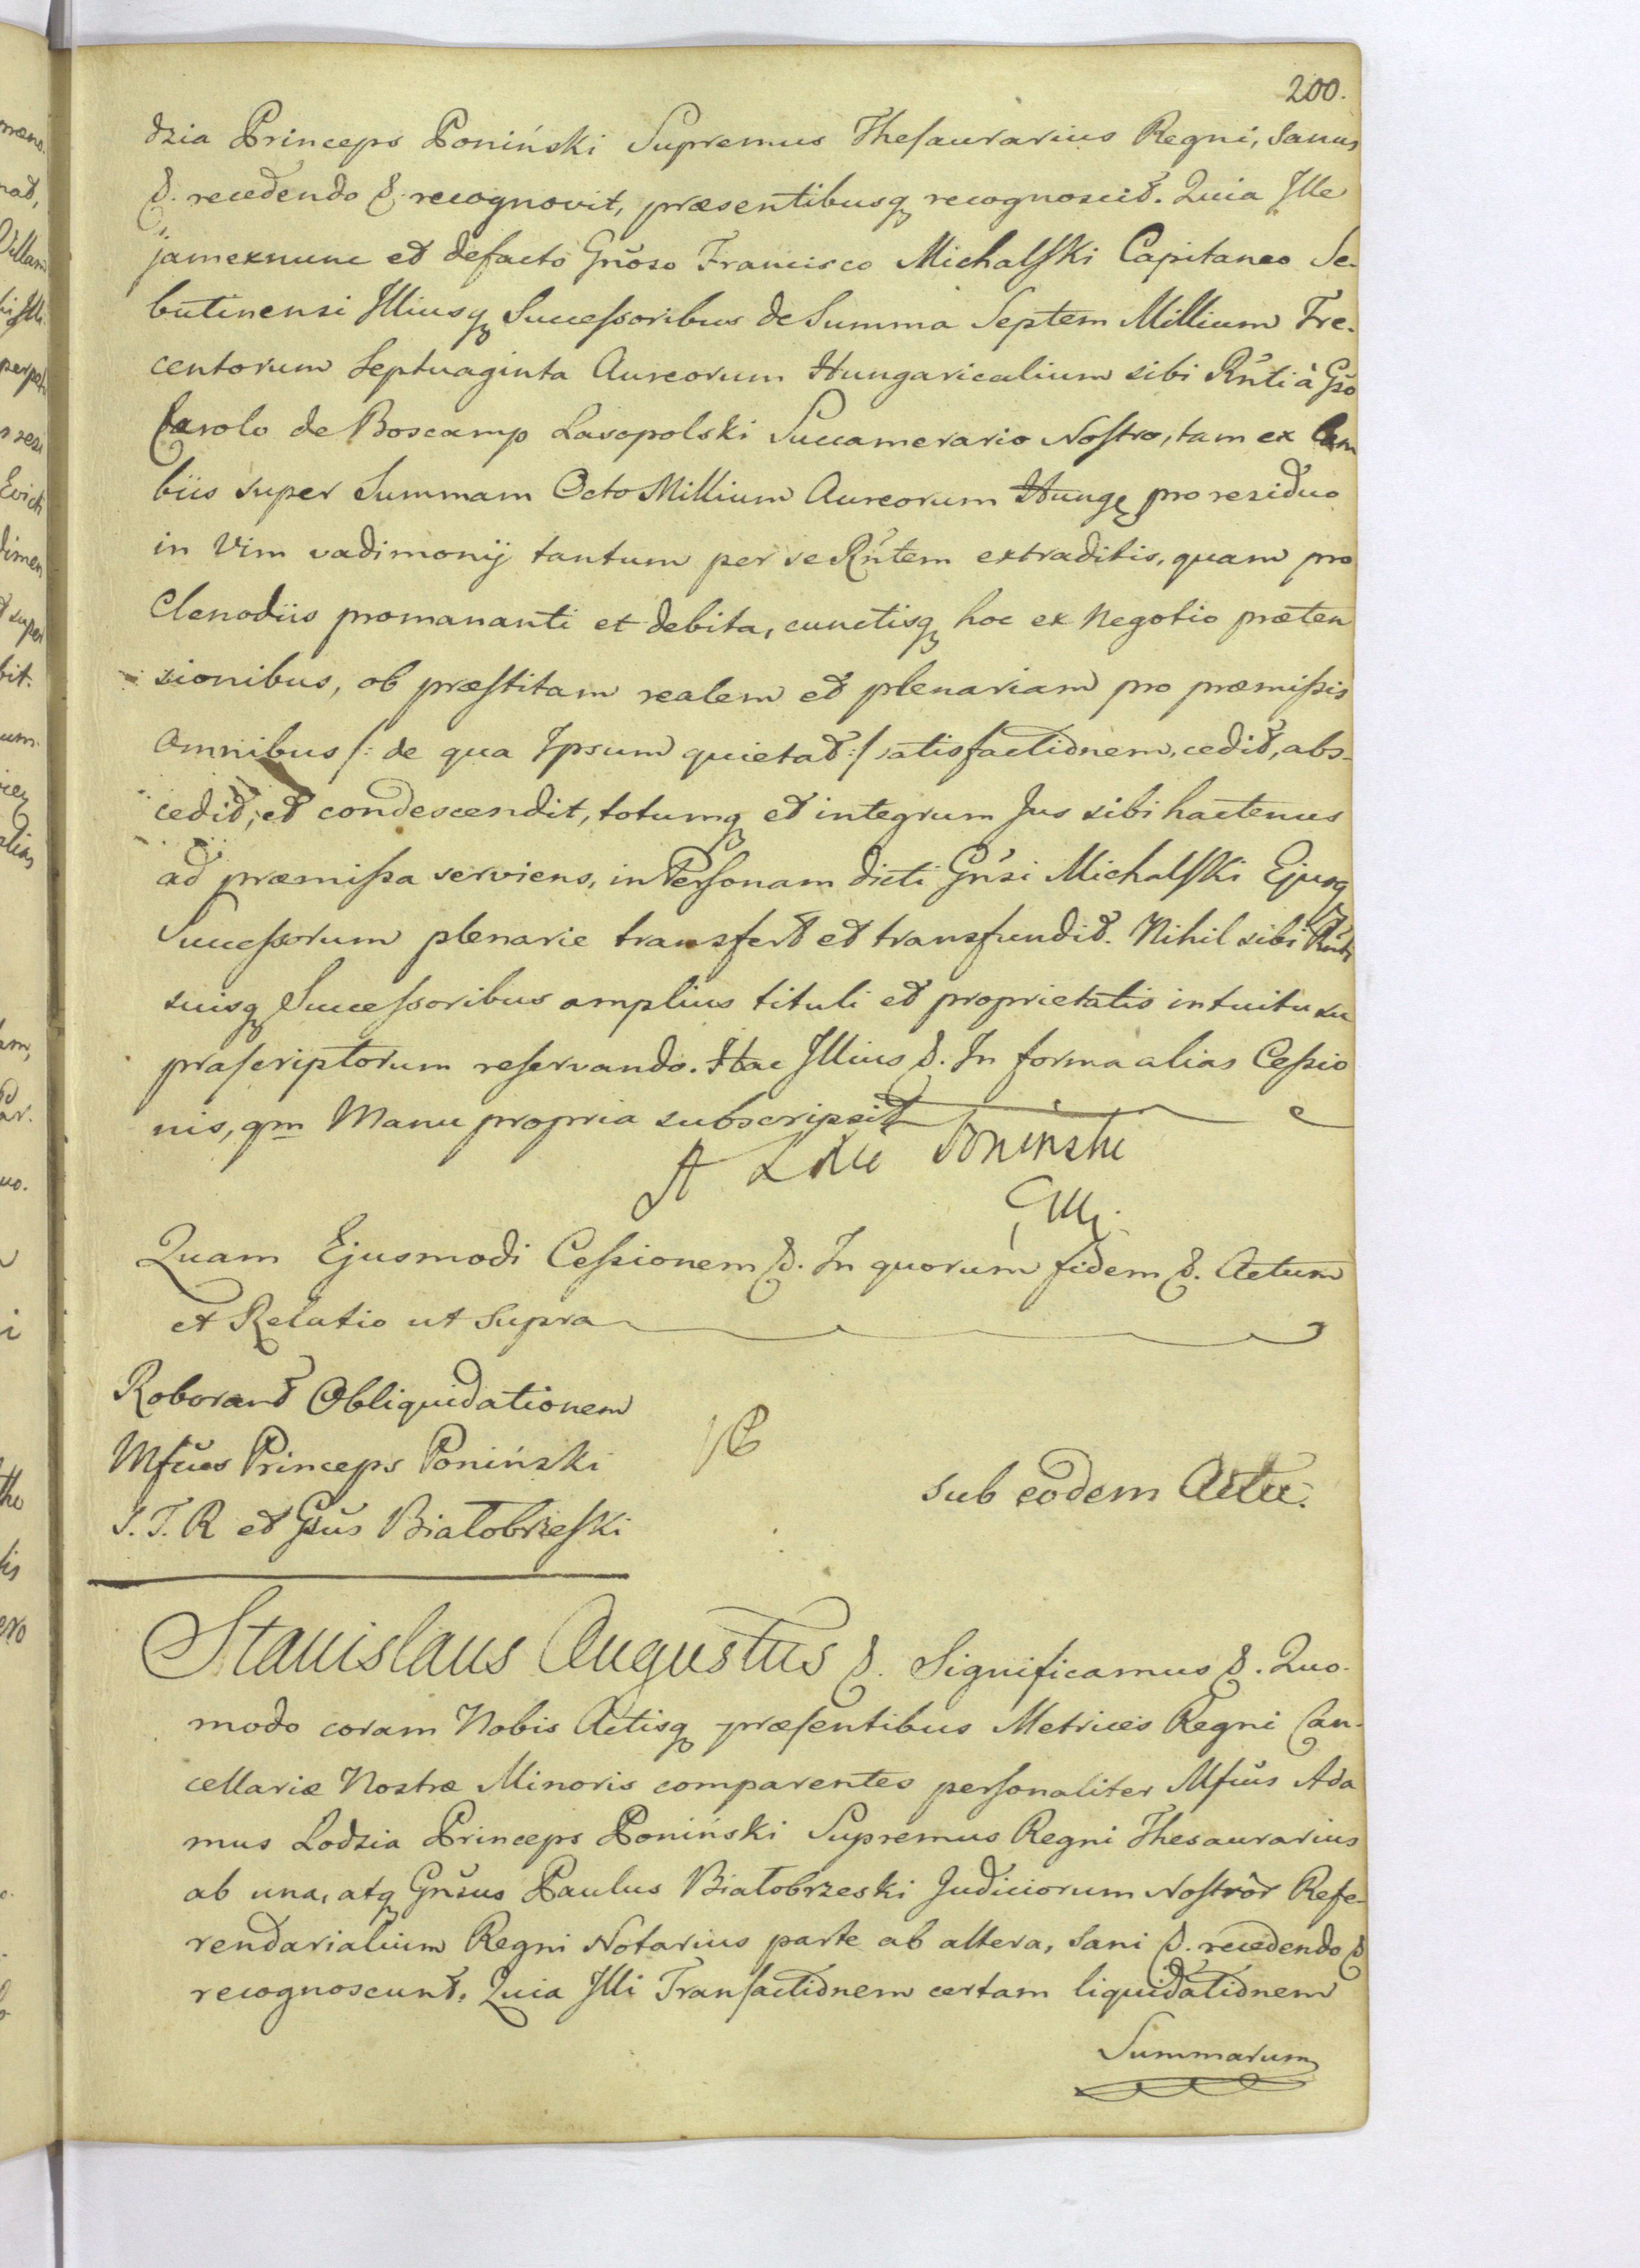 200.
dzia Princeps Poniński Supremus Thesaurarius Regni, Sanus
&. recedendo & recognovit, præsentibusq recognoscit. Quia Ille
jamexnunc et defacto Gnõso Francisco Michalski Capitaneo Se-
butinensi Illiusq Successoribus de Summa Septem Millium Tre-
centorum Septuaginta Aureorum Hungaricalium sibi Rñti à Gso
Carolo de Boscamp Lasopolski Succamerario Nostro, tam ex Cam
biis super Summam Octo Millium Aureorum Hung pro residuo
in Vim vadimonij tantum per se Rñtem extraditis, quam pro
Clenodiis promananti et debita, cunctisq hoc ex Negotio præten
sionibus, ob præstitam realem et plenariam pro præmissis
Omnibus /: de qua Ipsum quietat :/ satisfactionem, cedit, abs-
cedit, et condescendit, totumq et integrum Jus sibi hactenus
ad præmissa serviens, in Personam dicti Gñsi Michalski Ejusq
Successorum plenarie transfert et transfundit. Nihil sibi Rñti
suisq Successoribus amplius tituli et proprietatis intuitu su
prascriptorum reservando. Hac Illius &. In forma alias Cessio
nis, qm Manu propria subscripsit
A Lodzia Poninski
Quam Ejusmodi Cessionem &. In quorum fidem &. Actum
et Relatio ut Supra
Roborant Obliquidationem
Mfcus Princeps Poniński
S. T. R et Gsus Białobrzeski
sub eodem Actu.
Stanislaus Augustus &. Significamus &. Quo-
modo coram Nobis Actisq præsentibus Metrices Regni Can-
cellariæ Nostræ Minoris comparentes personaliter Mfcus Ada
mus Lodzia Princeps Poniński Supremus Regni Thesaurarius
ab una, atq Gnsus Paulus Białobrzeski Judiciorum Nostrôr Refe-
rendarialium Regni Notarius parte ab altera, Sani &. recedendo &
recognoscunt. Quia Illi Transactionem certam liquidationem
Summarum